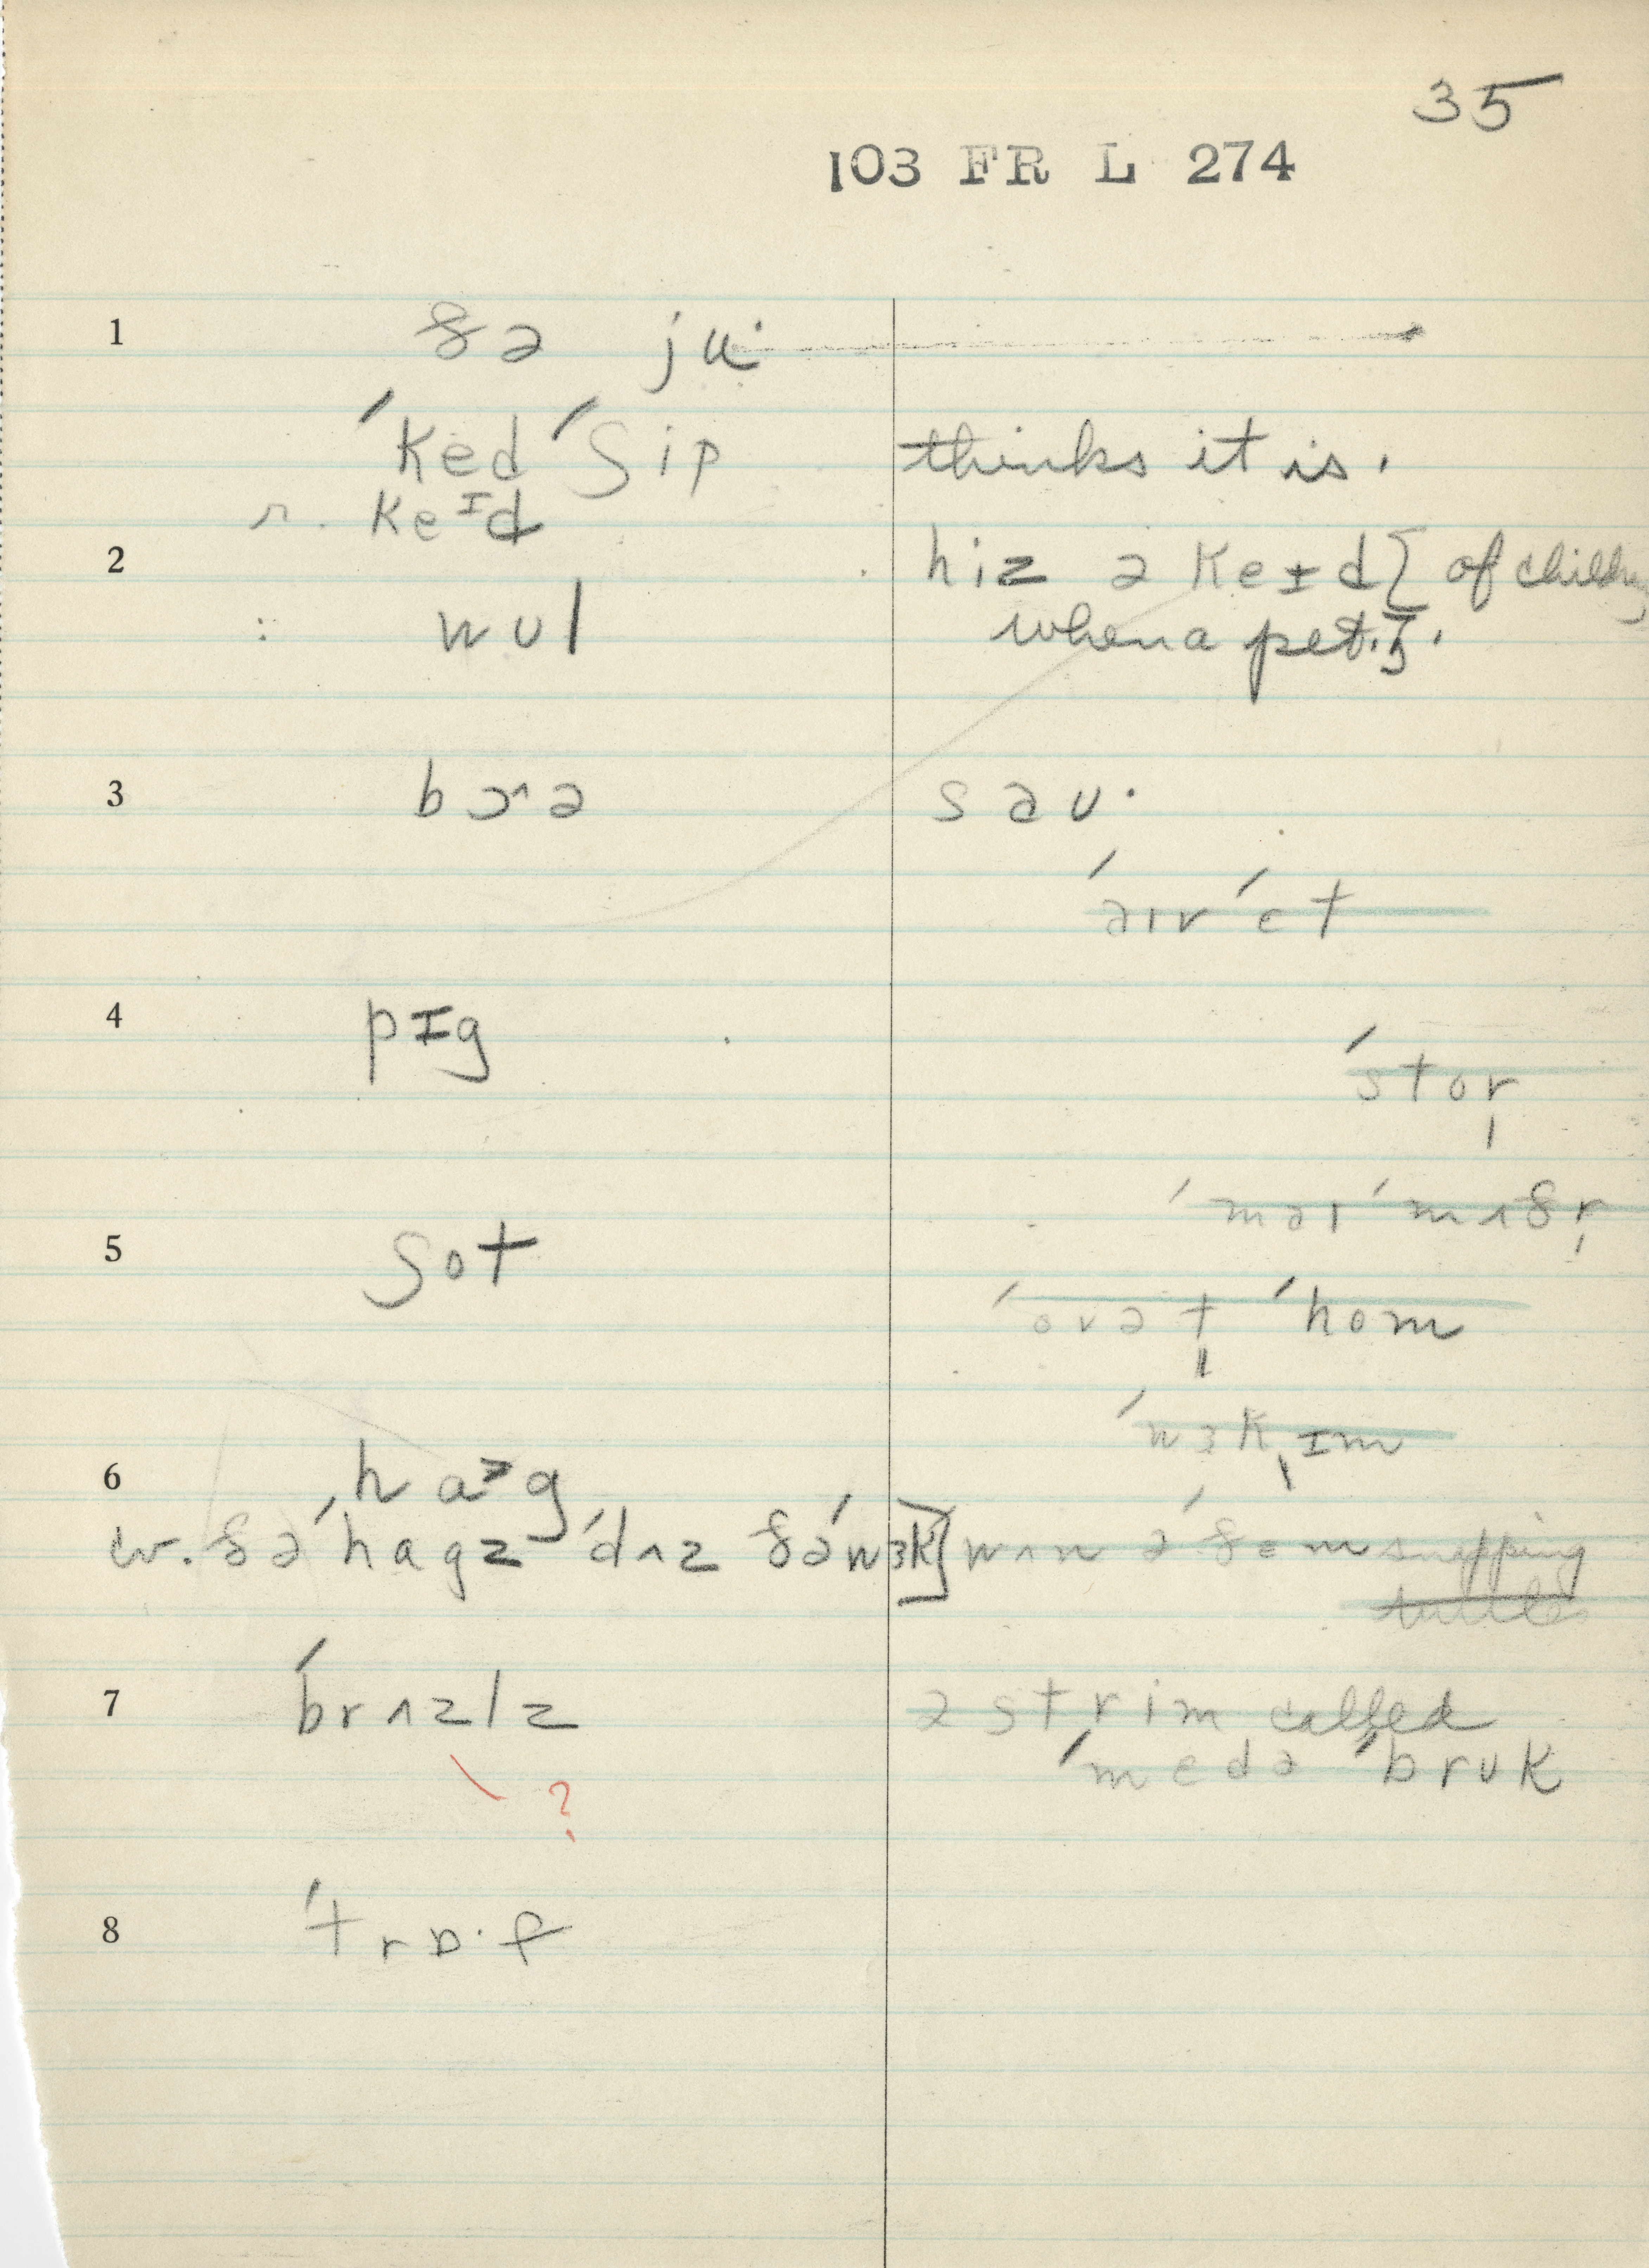 35
103 FR L 274
1 ðə ju·
ˈked ˈʃip thinks it is.
r. keɪd
2 hiz ə keɪd [of children
: wul when a pet.].
3 bɔ˄ə səu·
ˈəɪr ˈet
4 pɪg
ˈstor̩
5 ʃot
ˈməɪ ˈmʌðr̩
ˈovət̩ ˈhom
ˈwɜk̩ɪm
6 ha>g
w. ðə ˈhagz ˈdʌz ðə ˈwɜk] wʌn ə ˈðem snapping
turtles
7 ˈbrʌzlz ə strim called
ˈmedə ˈbruk
?
8 ˈtrɒ·f